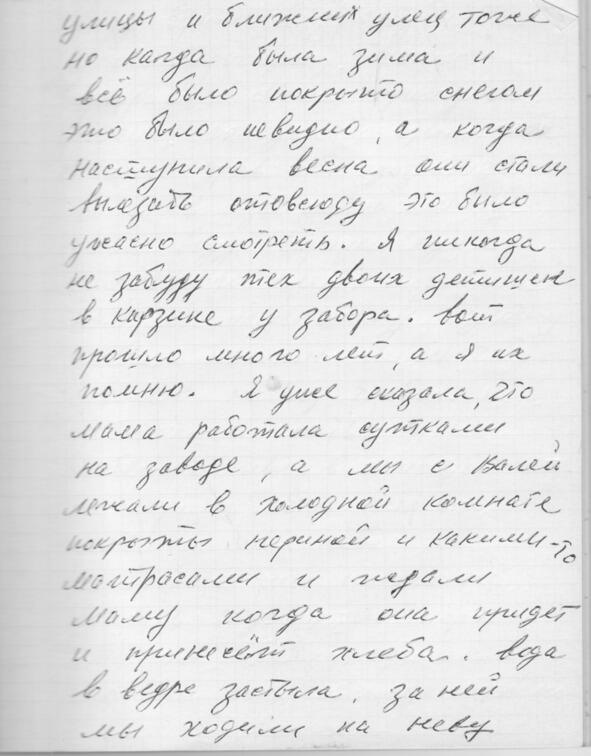 улицы и ближних улец тоже
но кагда была зима и
всё было покрыто снегом
это было невидно, а когда
наступила весна они стали
вылазить отовсюду это было
ужасно смотреть. Я никогда
не забуду тех двоих детишек
в карзине у забора. вот
прошло много лет, а я их
помню. Я уже сказала, что
мама работала сутками
на заводе, а мы с Валей
лежали в холодной комнате
покрыты периной и какими-то
матрасами и ждали
маму когда она придет
и принесёт хлеба. вода
в ведре застыла, за ней
мы ходили на неву